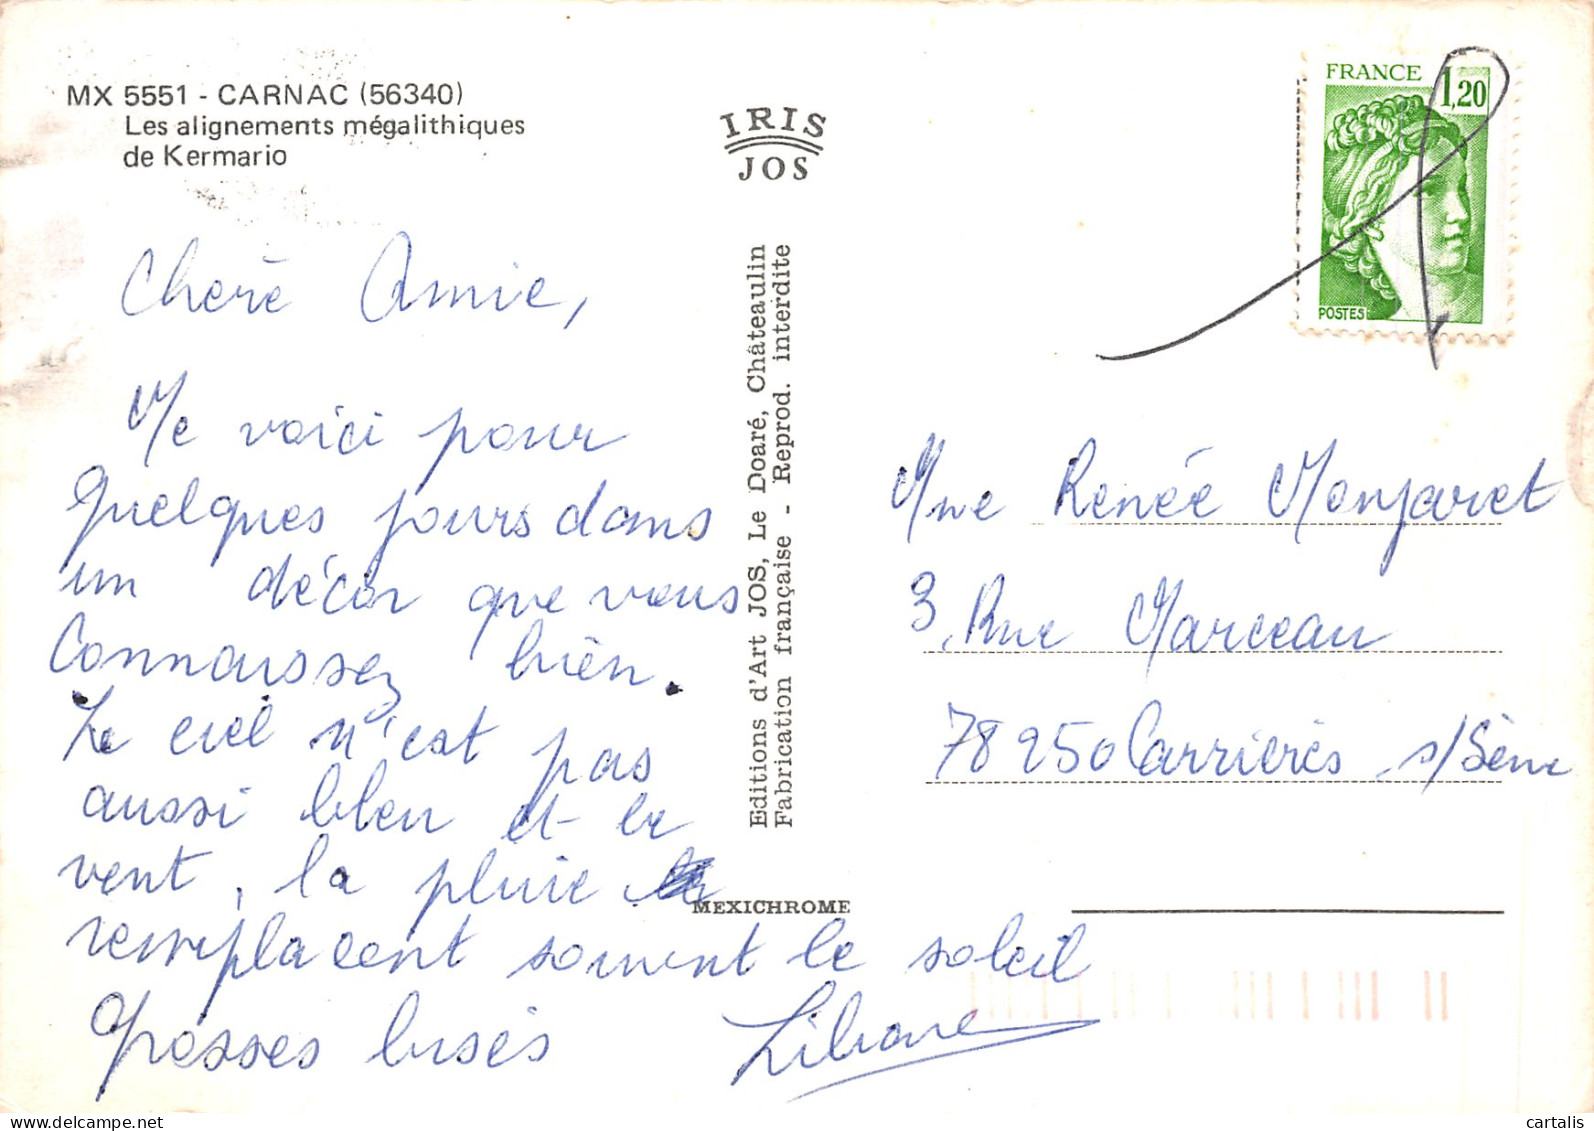 MX 5551 - CARNAC (56340)
Les alignements mégalithiques
de Kermario
IRIS
JOS
FRANCE
1,20
POSTES
Chère Amie,
Me voici pour
quelques jours dans
un décor que vous
Connaissez bien.
Le ciel n'est pas
aussi bleu et le
vent, la pluie
remplacent souvent le soleil
Grosses bises
Liliane
Editions d'Art JOS, Le Doaré, Châteaulin
Fabrication française - Reprod. interdite
MEXICHROME
Mme Renée Monjaret
3, Rue Marceau
78250 Carrières s/Seine
cartalis
delcampe.net